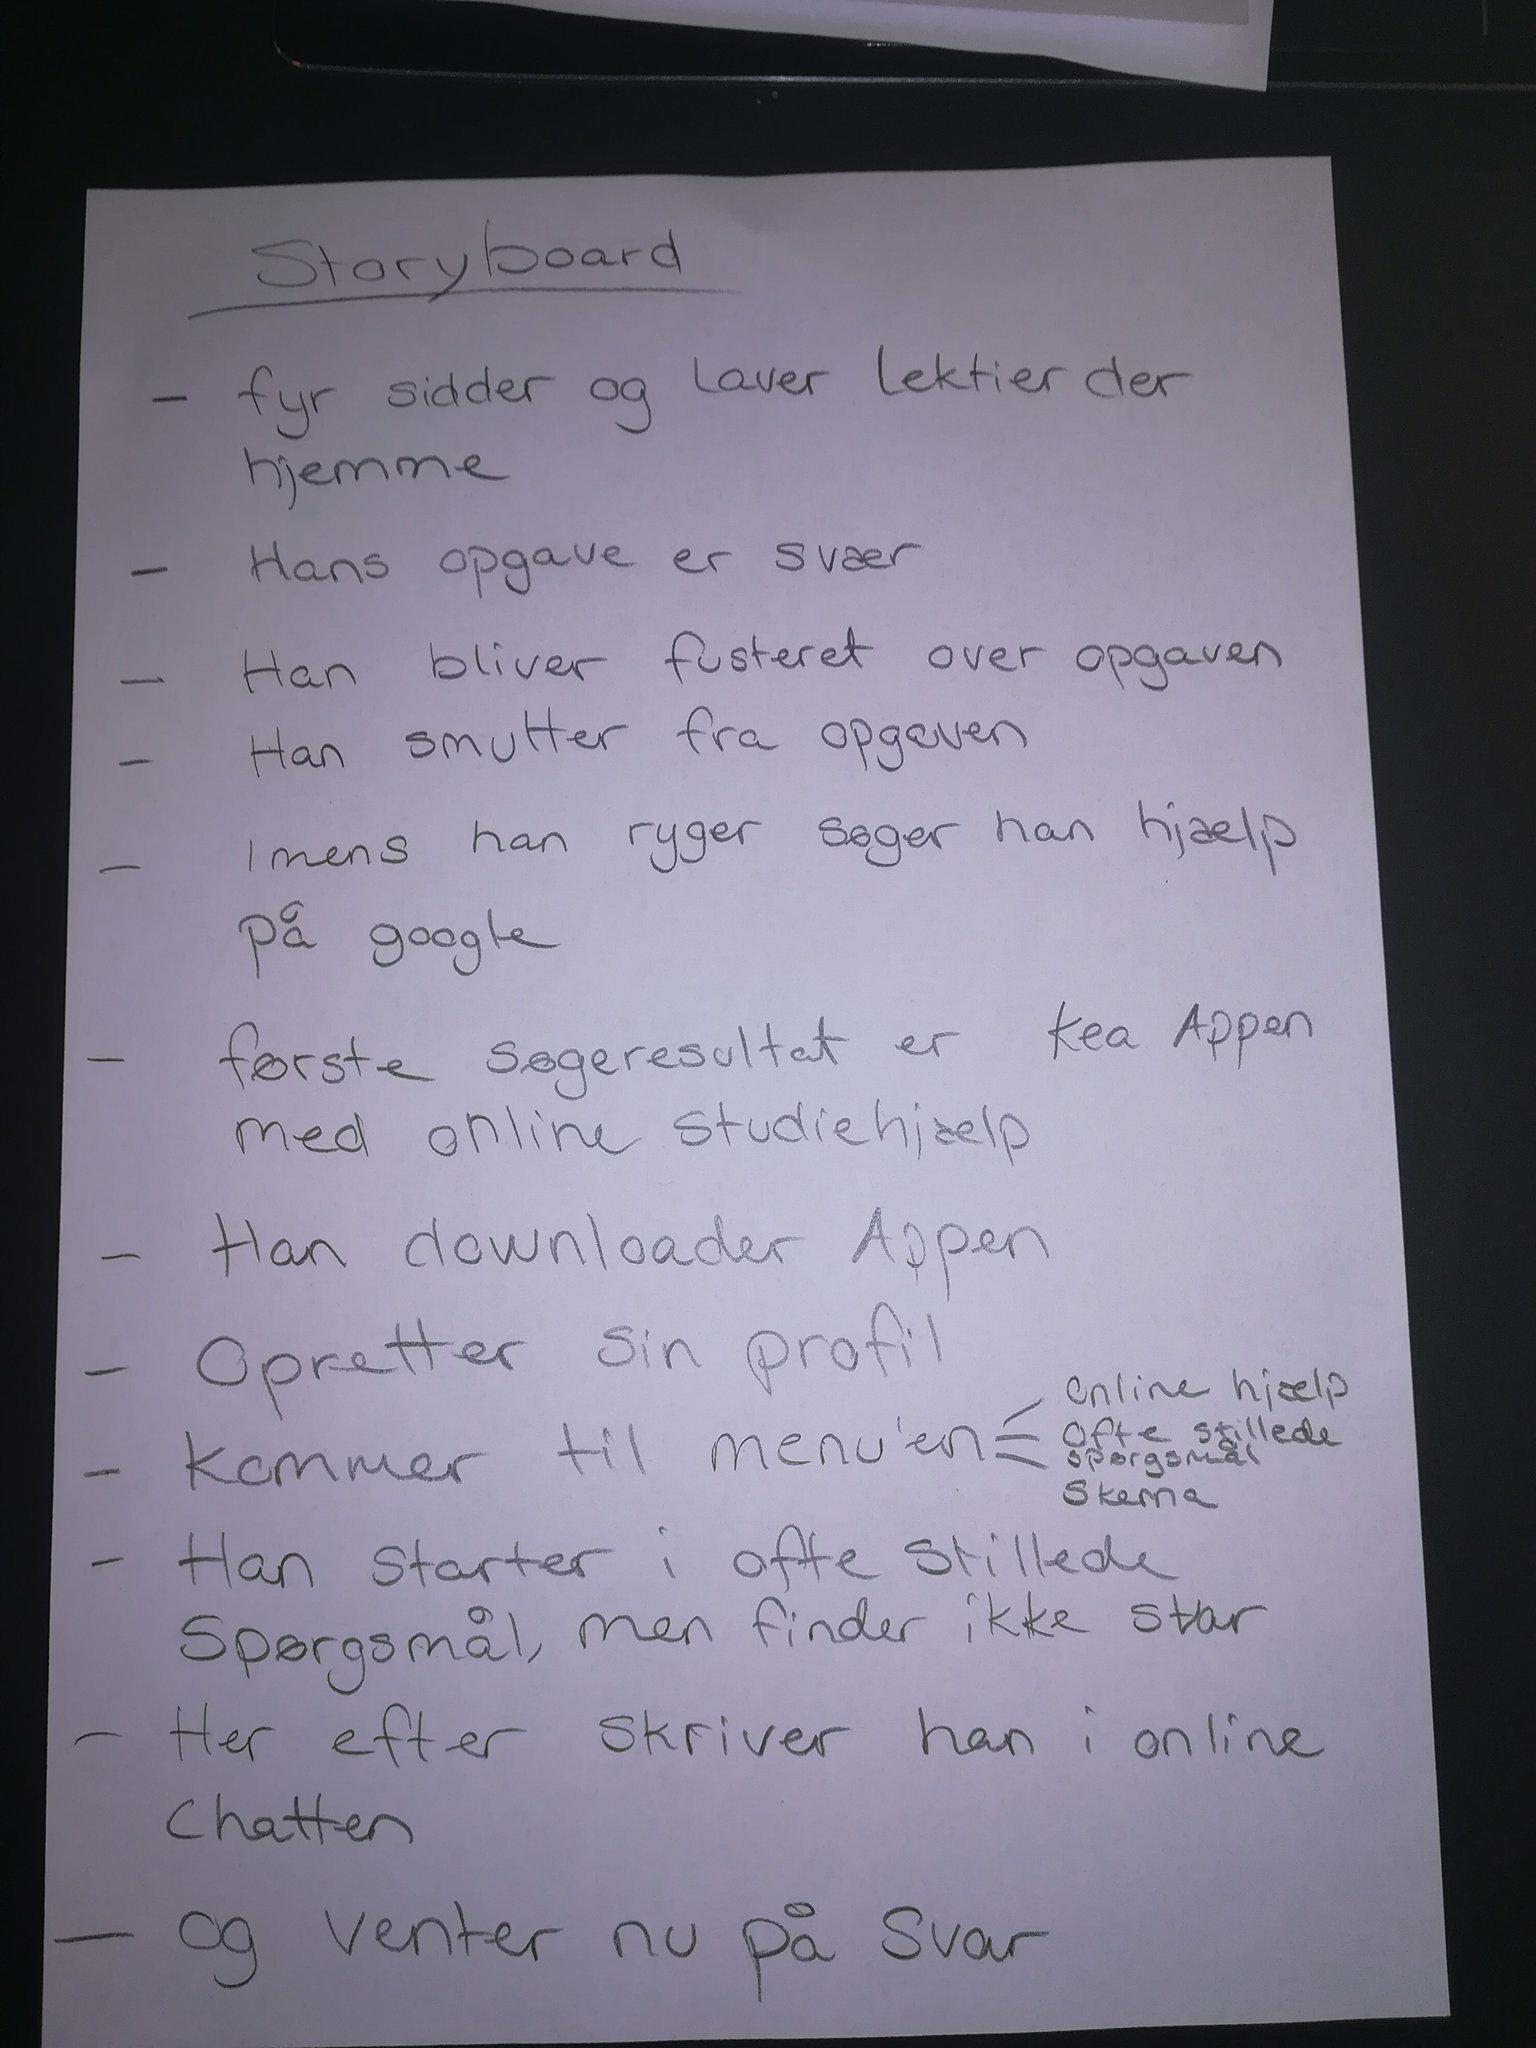 Storyboard
- fyr sidder og laver lektier der
hjemme
- Hans opgave er svær
- Han bliver fusteret over opgaven
- Han smutter fra opgaven
- Imens han ryger søger han hjælp
på google
- første søgeresultat er kea Appen
med online studiehjælp
- Han downloader Appen
- Opretter sin profil
- Kommer til menu'en
online hjælp
ofte stillede
spørgsmål
Skema
- Han starter i ofte stillede
Spørgsmål, men finder ikke svar
- Her efter skriver han i online
Chatten
- Og venter nu på Svar